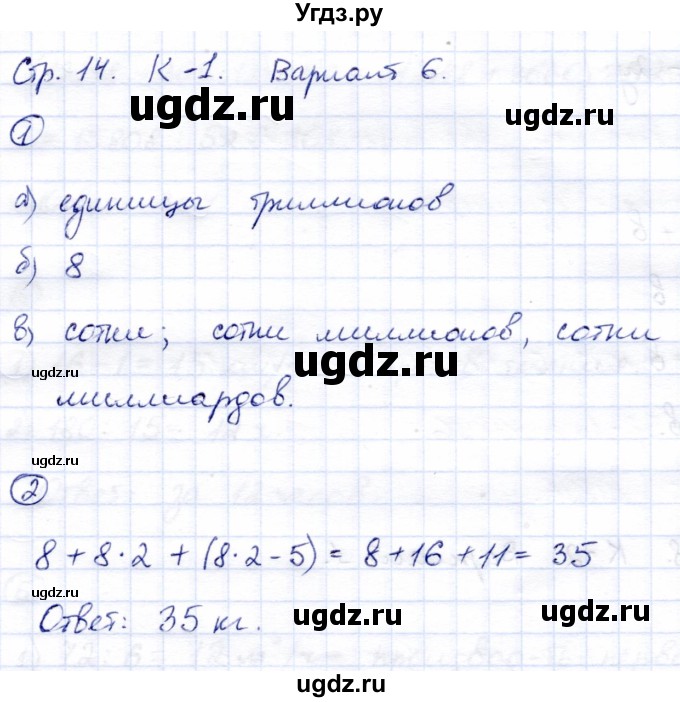 Угдз.ру
Стр. 14. К-1. Вариант 6.
ugdz.ru ugdz.ru
1
а) единицы триллионов
б) 8
в) сотни; сотни миллионов, сотни
ugdz.ru ugdz.ru
миллиардов.
ugdz.ru
2
ugdz.ru
8 + 8·2 + (8·2-5) = 8+16+11= 35
Ответ: 35 кг.
ugdz.ru ugdz.ru
ugdz.ru